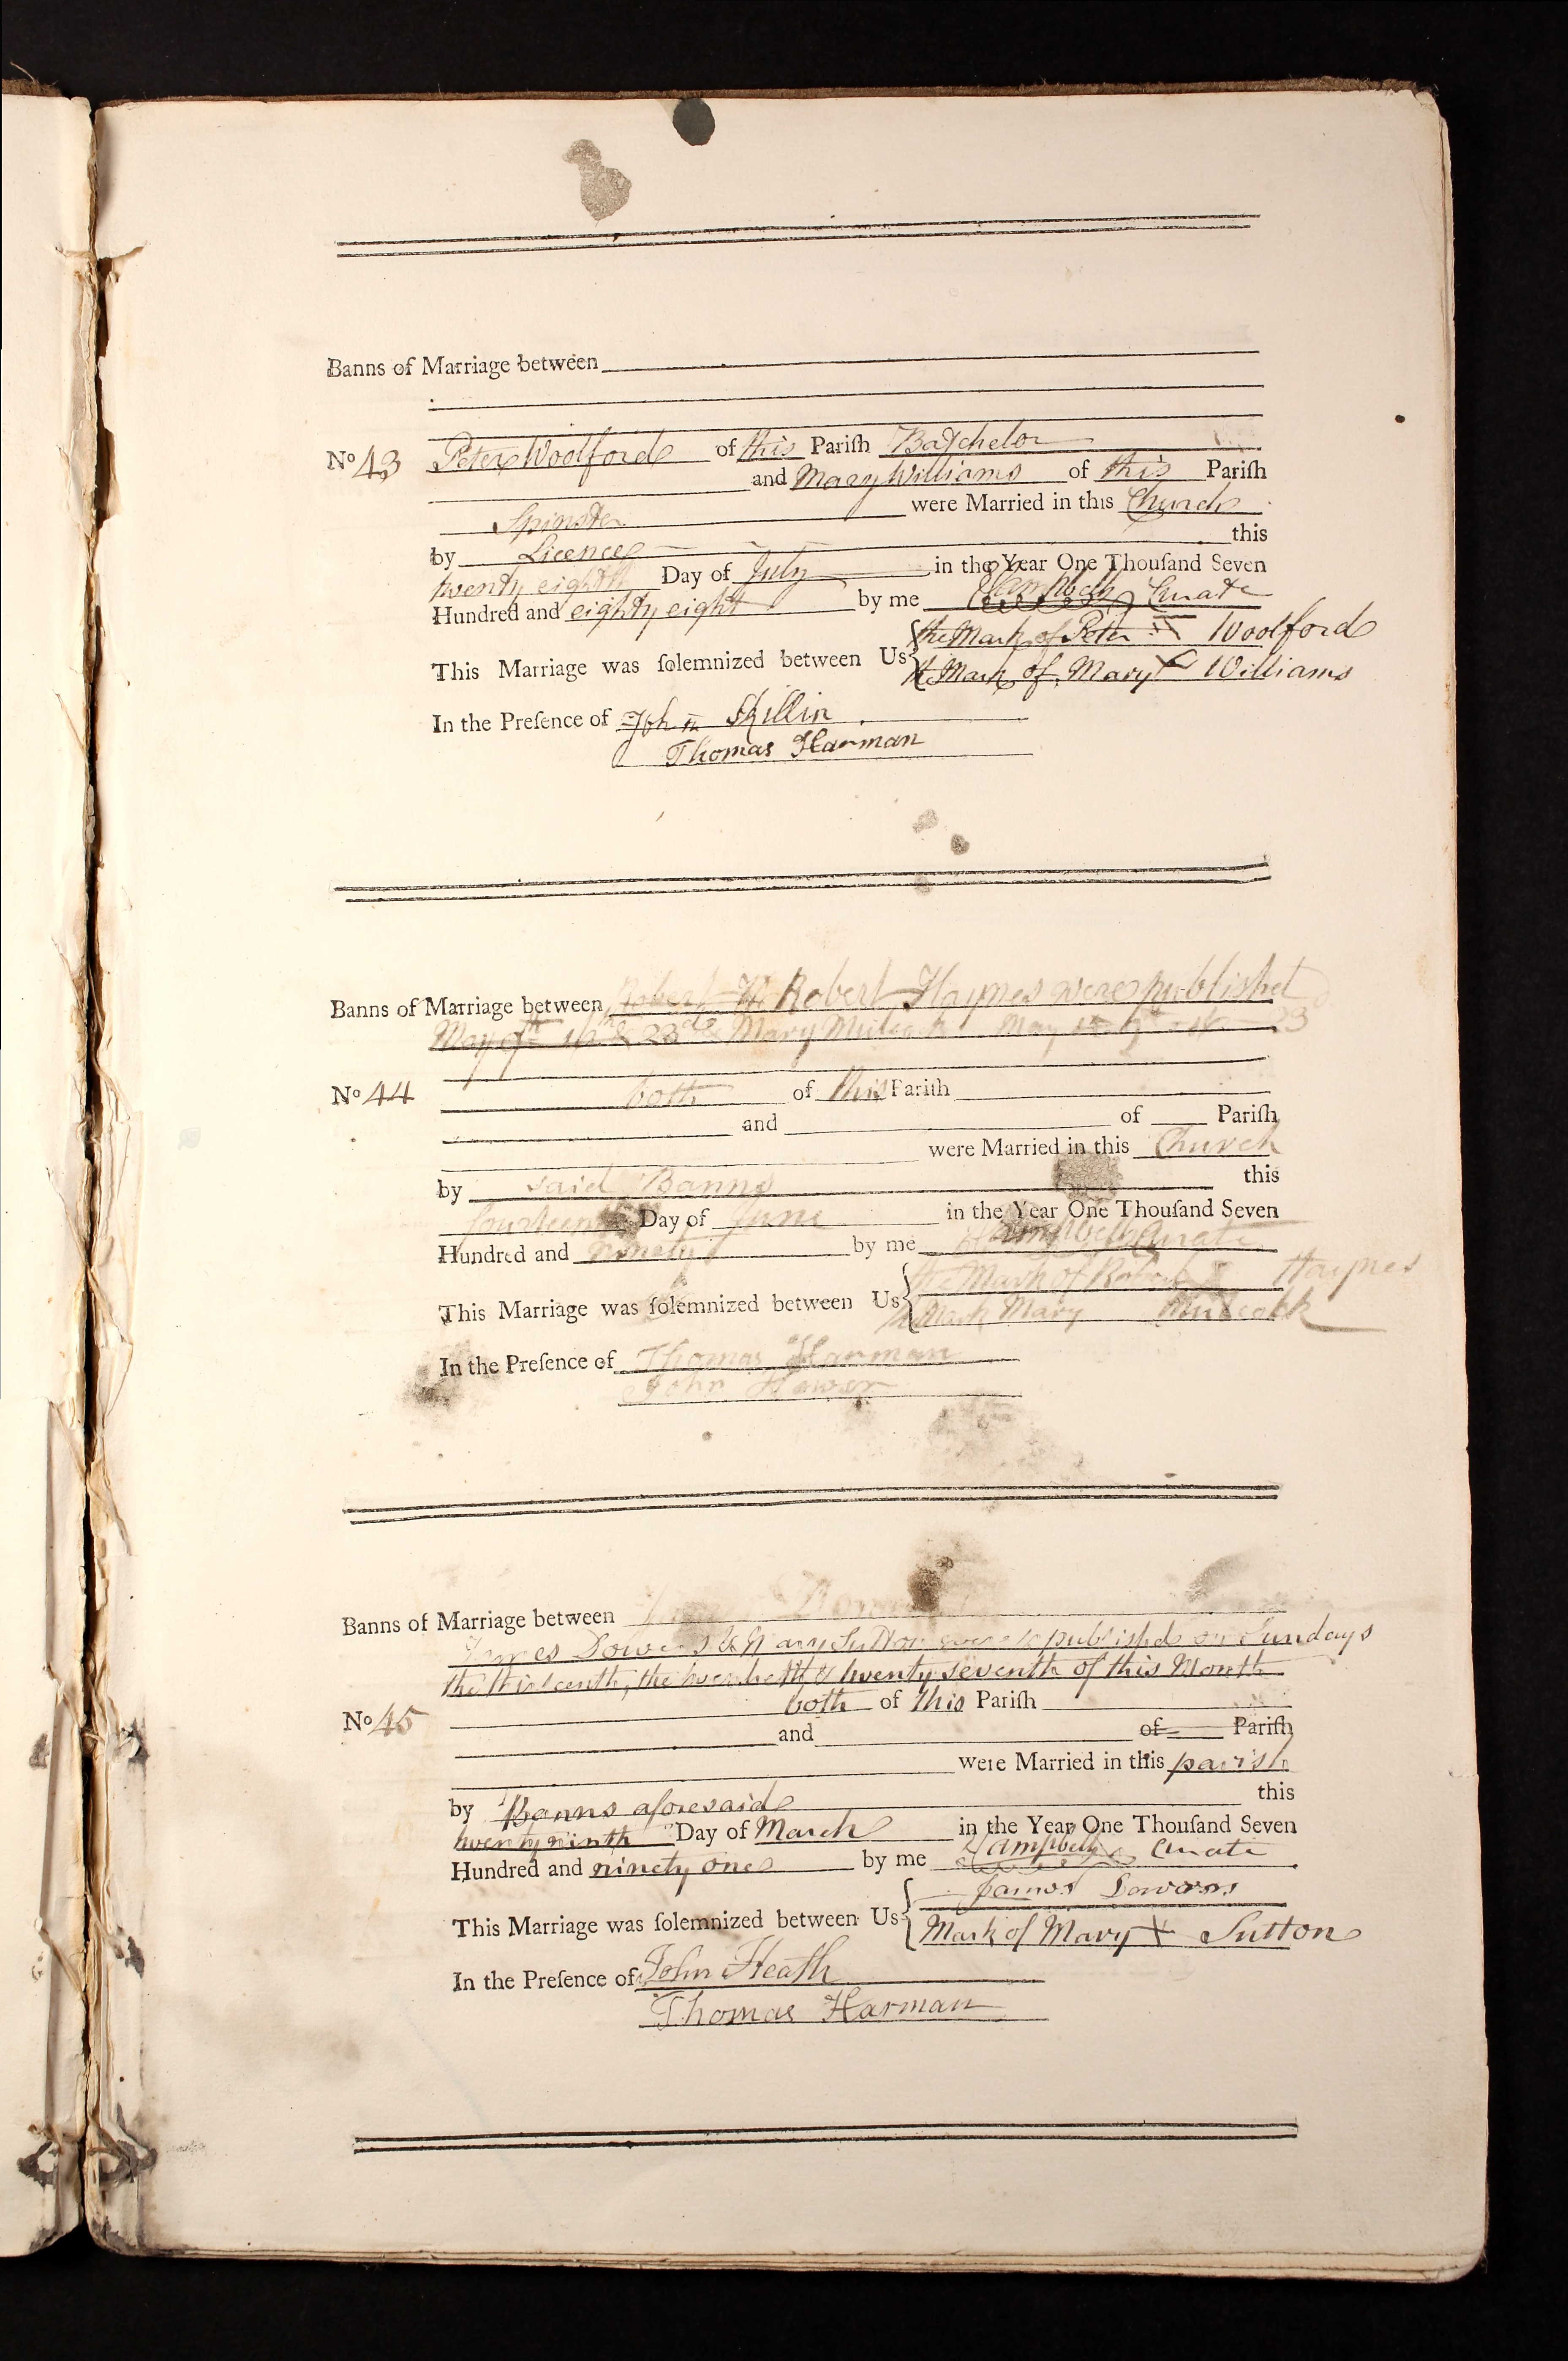 Banns of Marriage between
No 43 Peter Woolford of this Pariſh Batchelor
and Mary Williams of this Pariſh
Spinster were Married in this Church
by Licence this
twenty eighth Day of July in the Year One Thouſand Seven
Hundred and eighty eight by me Campbell Curate
This Marriage was ſolemnized between Us the Mark of Peter Woolford
the Mark of Mary X Williams
In the Preſence of John Skillin
Thomas Harman
Banns of Marriage between Robert Robert Haynes were published
May 16 & 23 & Mary May 23
No 44 both of this Pariſh
and of Pariſh
were Married in this Church
by said Banns this
fourteenth Day of June in the Year One Thouſand Seven
Hundred and ninety by me Campbell Curate
This Marriage was ſolemnized between Us the Mark of Robert Haynes
Mark Mary
In the Preſence of Thomas Harman
John
Banns of Marriage between
James & Mary Sutton were published on Sundays
the thirteenth, the twentieth & twenty seventh of this Month
No 45 both of this Pariſh
and of Pariſh
were Married in this parish
by Banns aforesaid this
twenty ninth Day of March in the Year One Thouſand Seven
Hundred and ninety one by me Campbell Curate
This Marriage was ſolemnized between Us James
Mark of Mary X Sutton
In the Preſence of John Heath
Thomas Harman